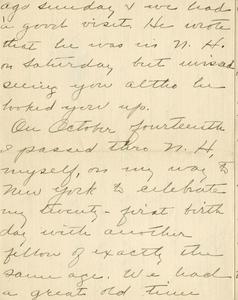 ago Sunday & we had
a good visit. He wrote
that he was in N. H.
on Saturday but missed
seeing you altho he
looked you up.
On October fourteenth
I passed thro N. H,
myself, on my way to
New York to celebrate
my twenty-first birth
day with another
fellow of exactly the
same age. We had
a great old time